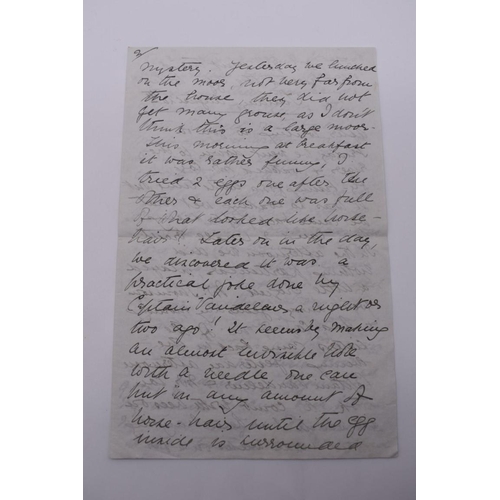 2/
mystery. Yesterday we lunched
on the moor, not very far from
the house, they did not
get many grouse, as I don't
think this is a large moor.
This morning at breakfast
it was rather funny, I
tried 2 eggs one after the
other & each one was full
of what looked like horse-
hairs! Later on in the day,
we discovered it was a
practical joke done by
Captain a night or
two ago! It seems by making
an almost invisible hole
with a needle one can
put in any amount of
horse-hairs until the egg
inside is surrounded